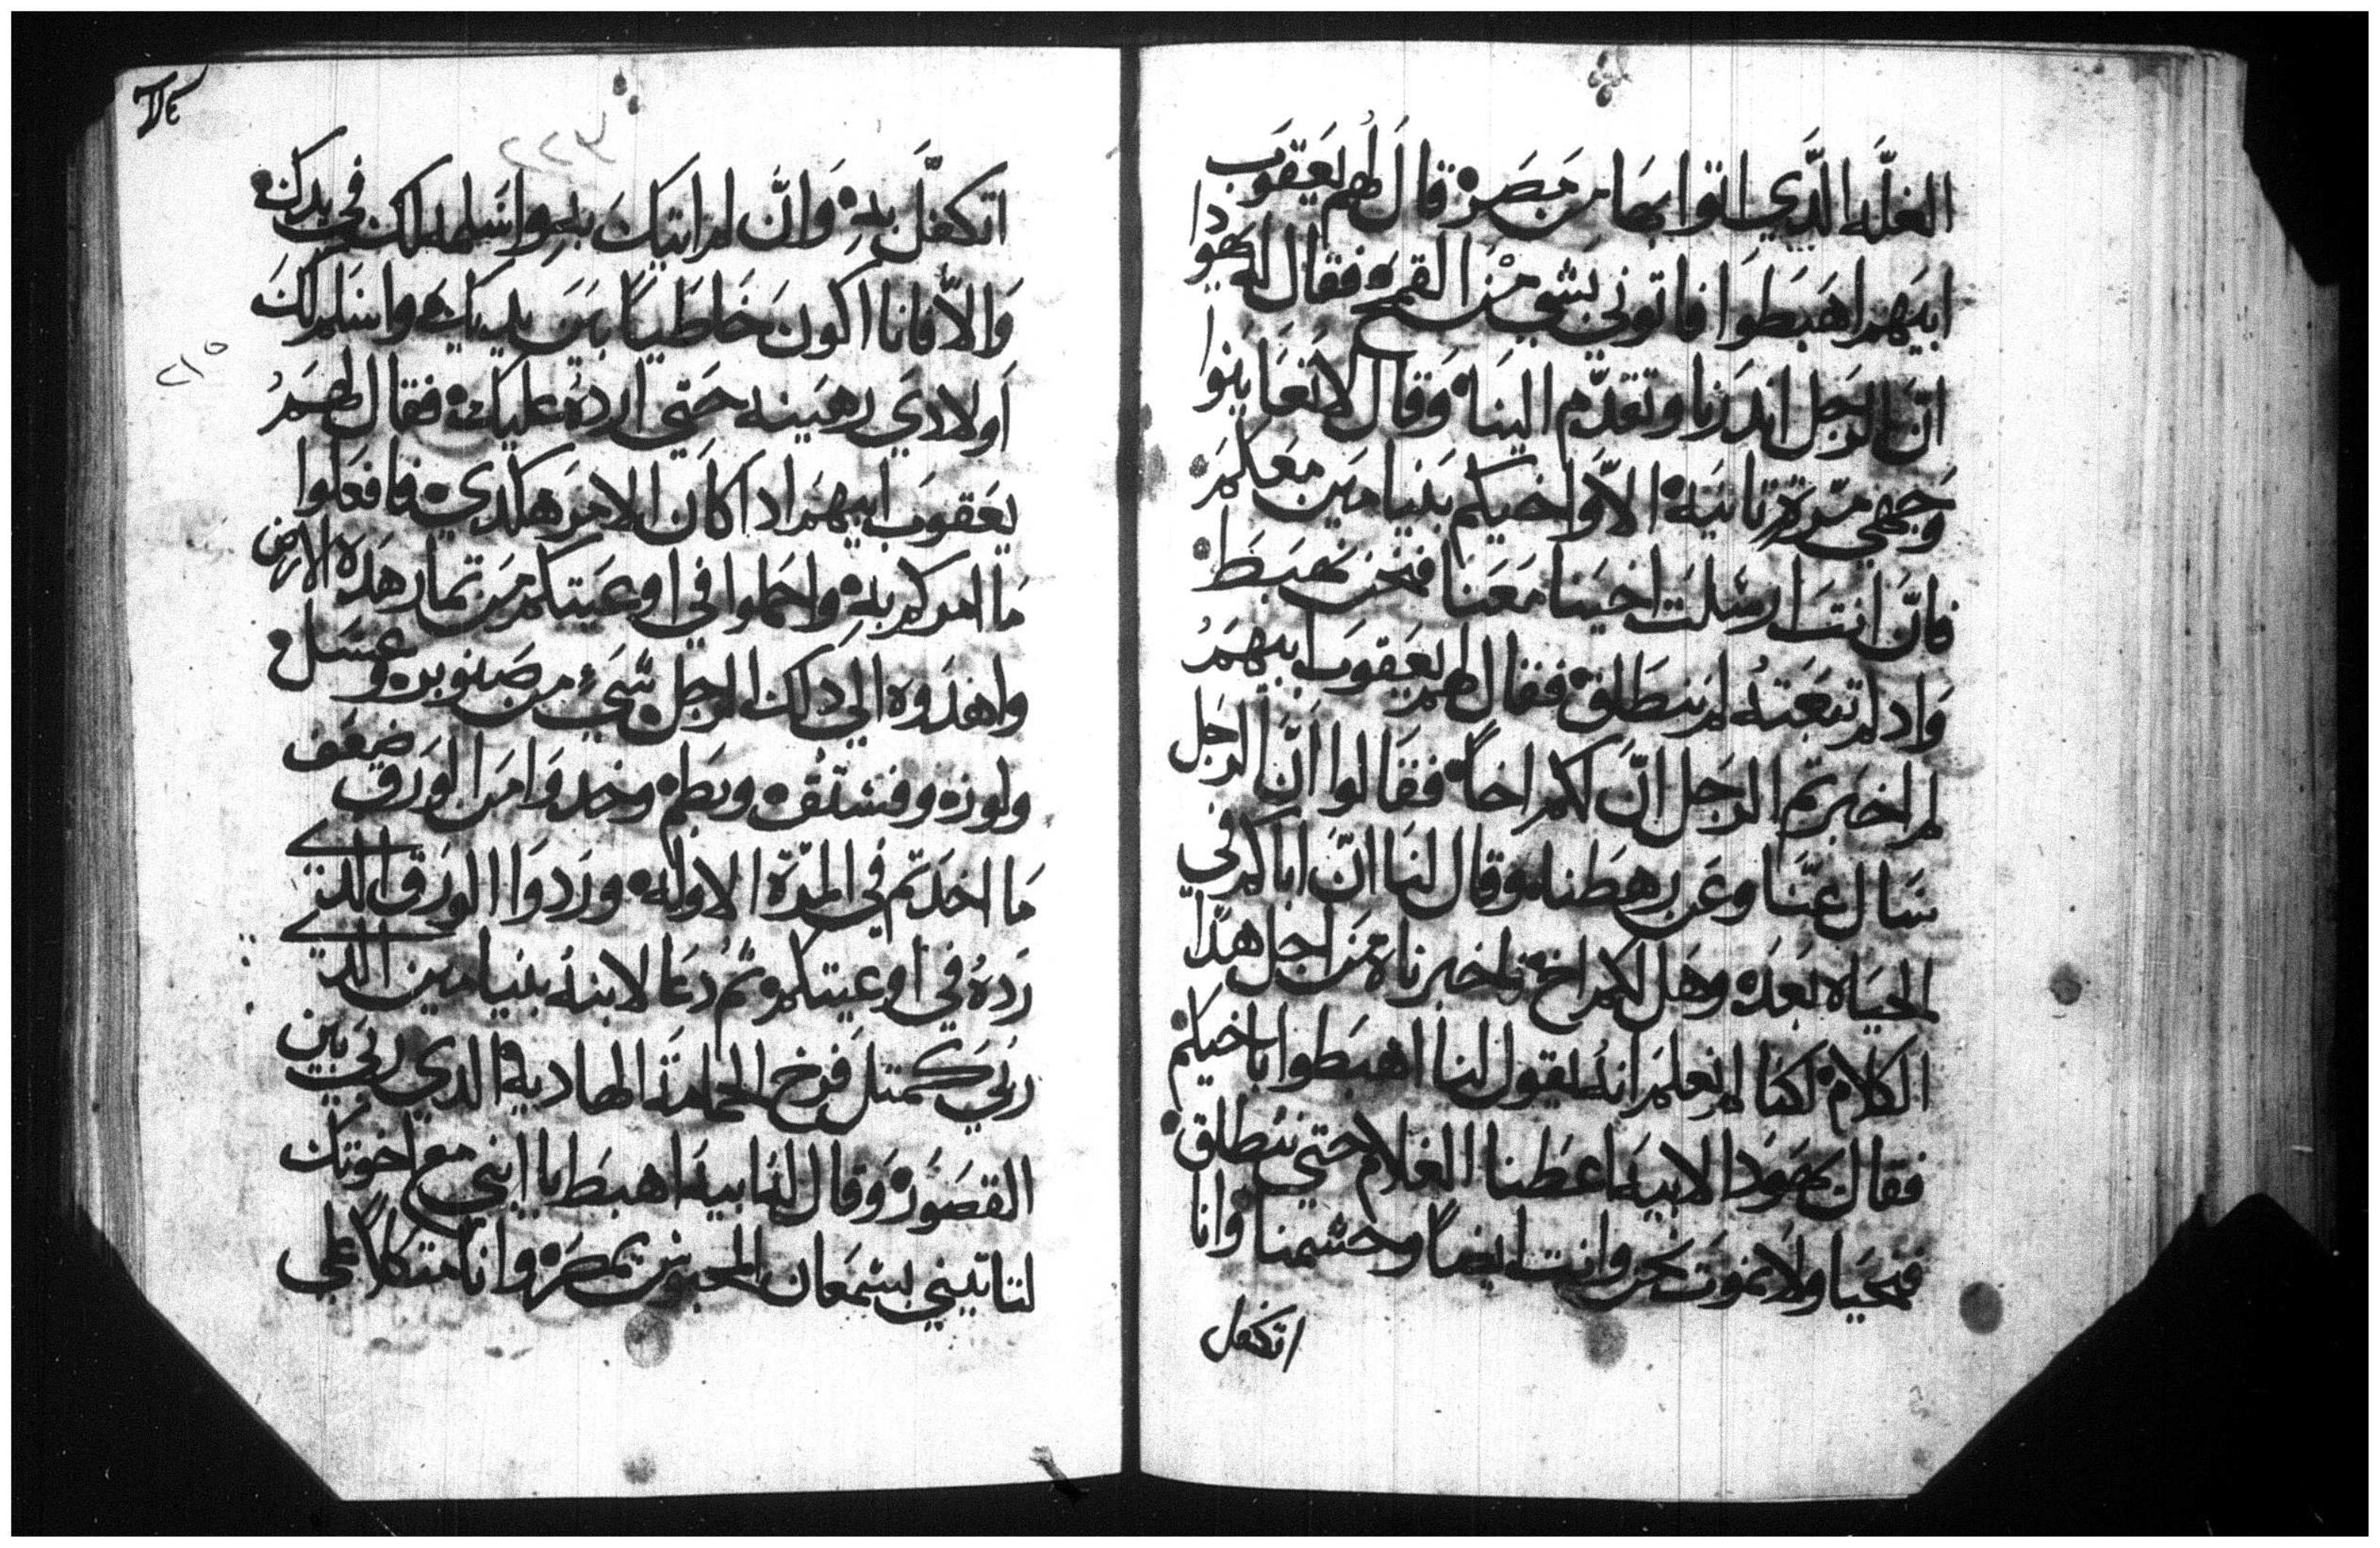 الغلّه الّدي اتوا بها من مَصَر قال لهُم يَعَقوَب
ابيَهَم اهَبَطوَا فاتوني بَشي مَن القمَح فقال له يهَوَدا
انّ الرجَل اندَرنا وتقدّم الينَا وَقال لا تعَاينوا
وَجَهي مَرة تانيَة الاّ وَاخيكم بَنيامَين مَعَكمَ
فانّ انتَ ارسَلت اخينا مَعَنا فنحَن نهَبَط
وَاد لم تبَعَتهُ لم ننطَلق فقال لهم يَعَقوَب ابيَهمَ
لم اخبَرتم الرجَل انّ لكم اخاً فقَالوا انّ الرجَل
سَال عَنّا وعَن رهطَنا وقال لنا انّ اباكم في
الحيَاه بَعَد وهَل لكم اخ فاخبرناه مَن اجل هَدا
الكلام لكنا لم نعلمَ انهُ يقول لنا اهَبَطوا باخيكم
فقال يهَوَدا لابيَه اعَطنا الغلام حَتي ننطلق
فنحَيَا ولا نموَت نحَن وانت ايضاً وحشمنا وانا
اتكفل
٢٢٣
٢١٥
اتكفلّ بهِ وَانّ لم اتيكَ بهِ واسَلمه لك في يدك
وَالاّ فانا اكونَ خَاطَيَاً بَيَن يديك واسَلم لكَ
اَولادي رهَينه حَتي اردهُ عليك فقال لهَمُ
يَعَقوَب ابيهَم ادا كاَن الامَر هَكدي فافعَلوا
مَا امركم به واحَملوا في اوعَيَتكم مَن تمار هَده الارض
واهدَوه الي دلك الرجل شَيءً من صَنوبر وعَسَل
ولوز وفستَقُ وبَطم وخدوَا مَن الوَرَق ضَعَف
مَا اخدَتم في المَرّة الاوله ورَدوَا الورَق الدي
رَدهُ في اوعيتكم تُم دَعَا لابنهُ بنيامَين الدي
رَبيَ كمتل فرخ الحمامَة الهاديه الدي ربيَ بَين
القصَوُر وَقال لهُ ابيهَ اهبَط يا ابني مَع اخوتك
لتاتيَني بشمَعَان المحبوس بمصَر وانا متكلاً عَلي